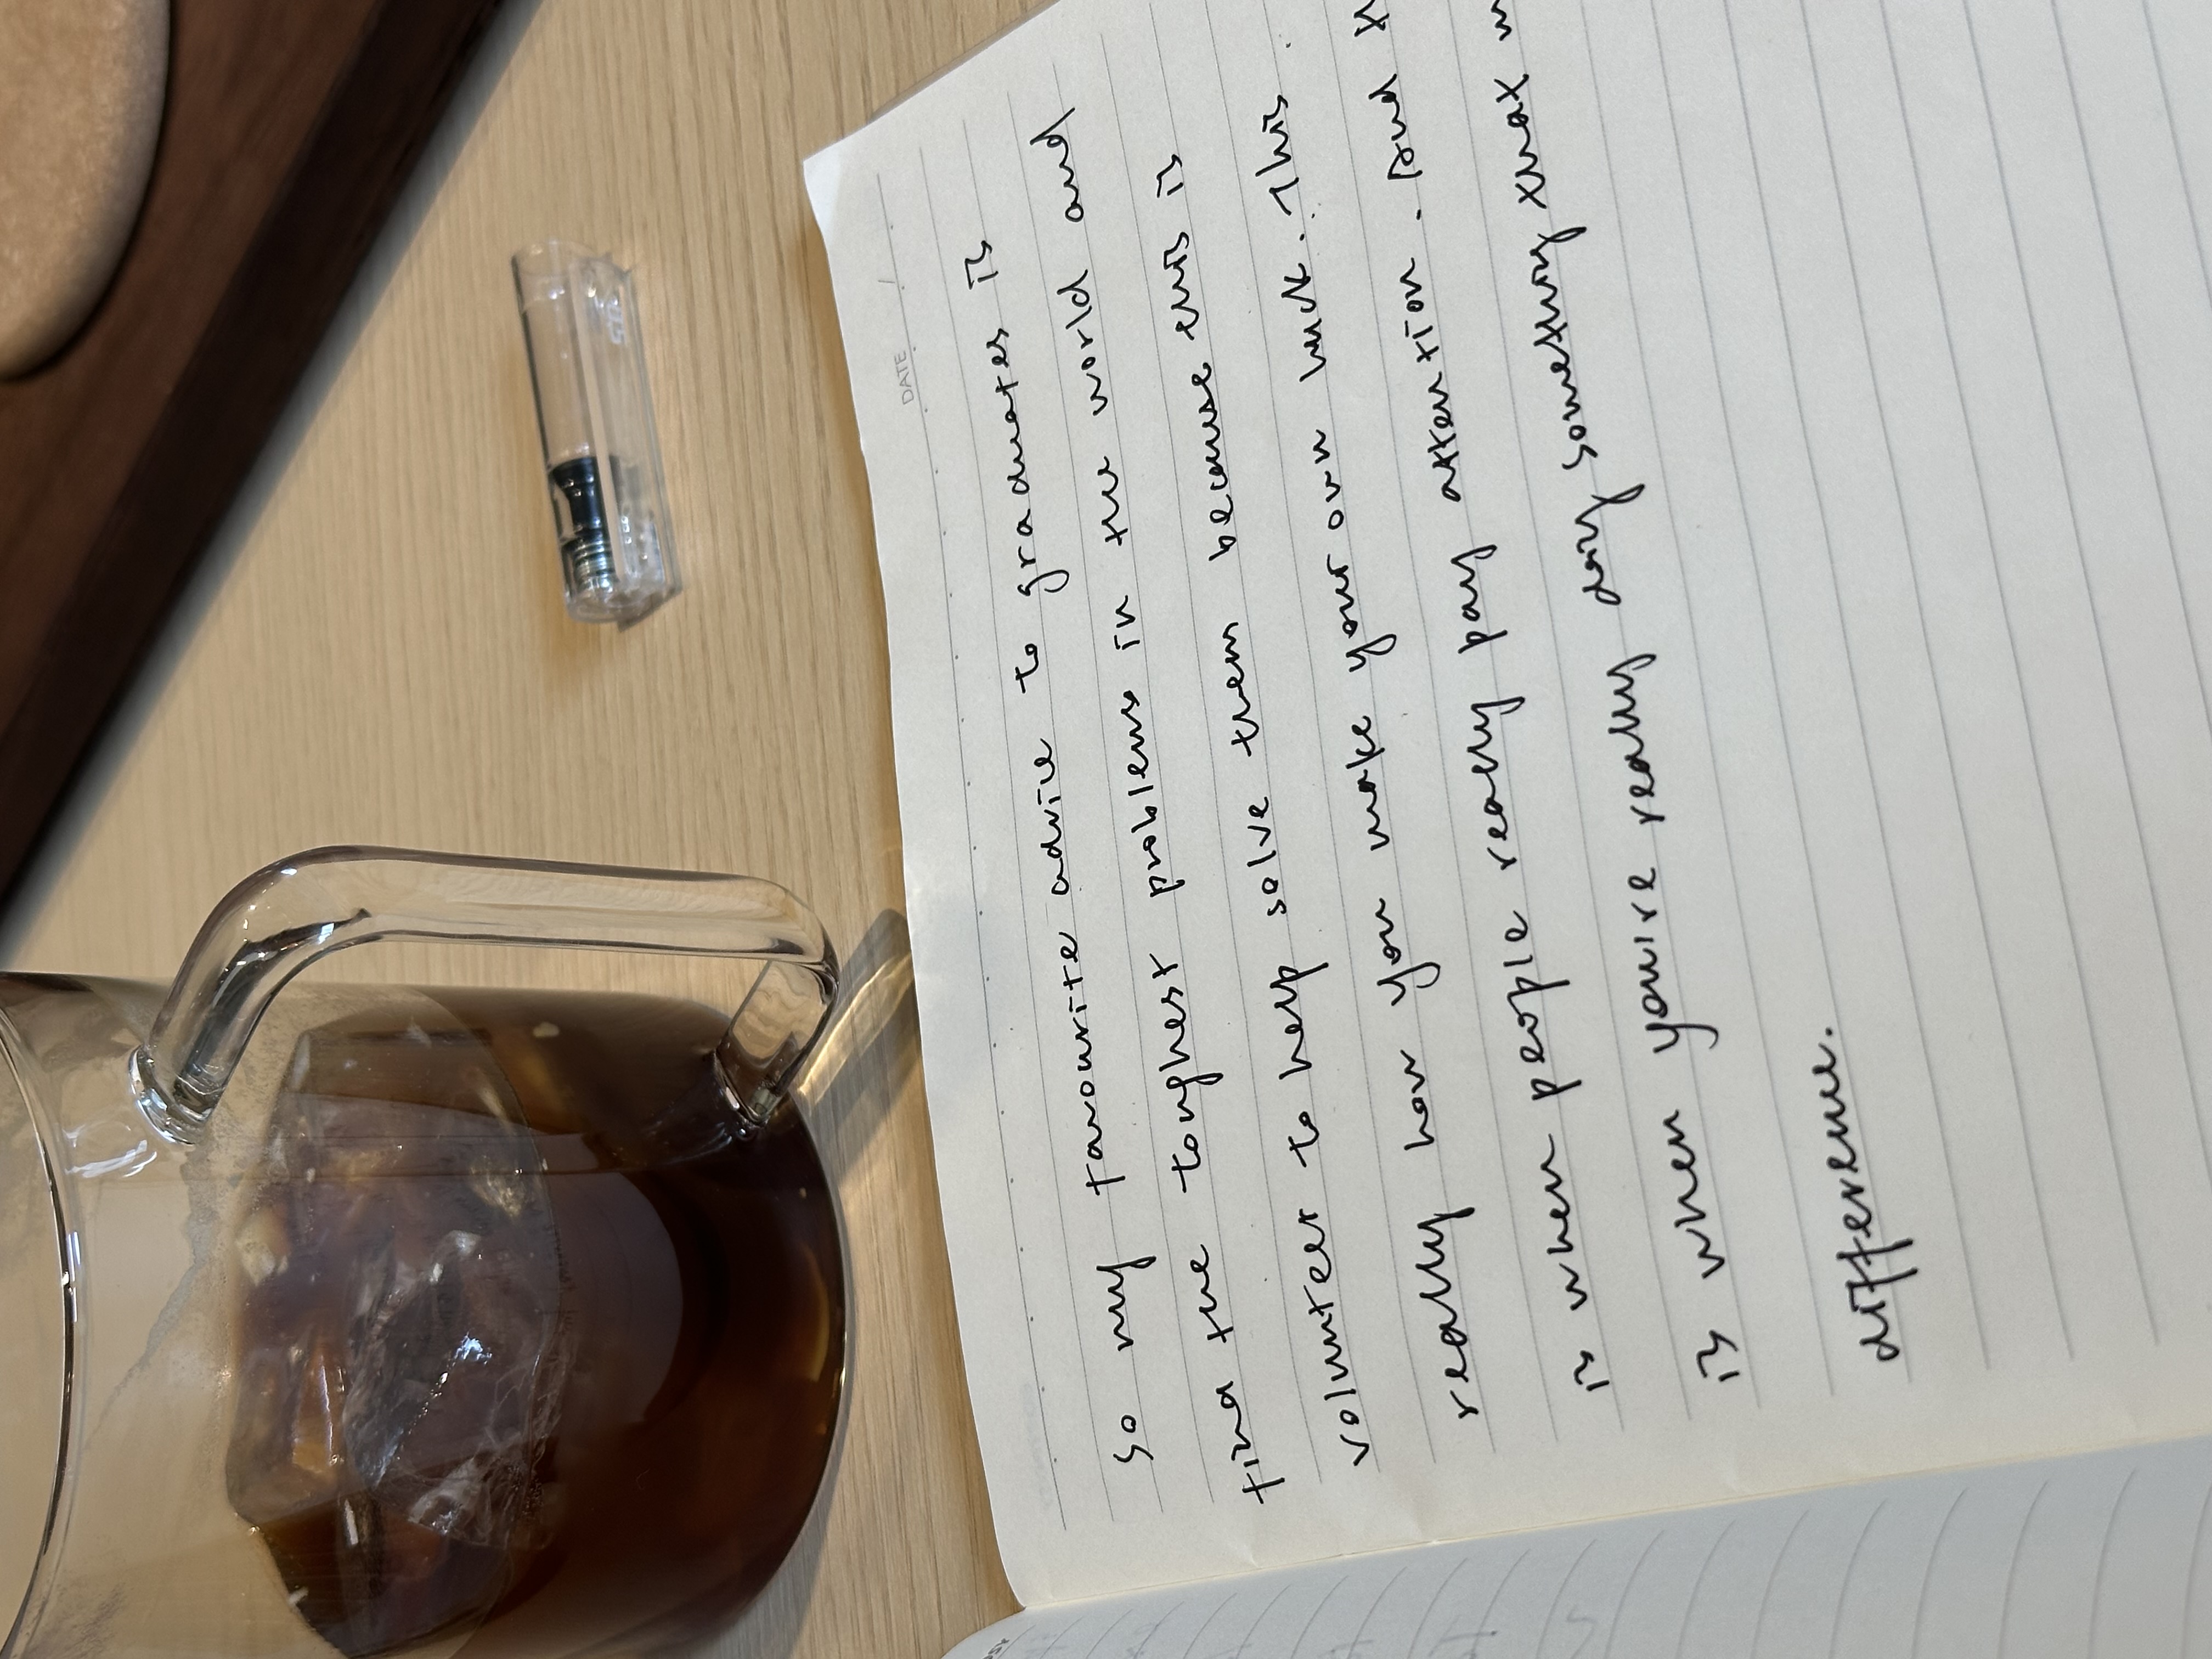 DATE / /
so my favourite advice to graduates is
find the toughest problems in the world and
volunteer to help solve them because this is
really how you make your own luck. This
is when people really really pay attention. And
is when you're really doing something that
difference.